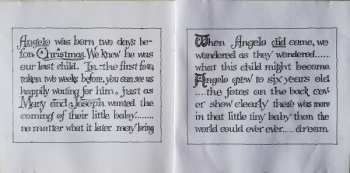 Angelo was born two days be-
fore Christmas. We knew he was
our last child. In the first foto,
taken two weeks before, you can see us
happily waiting for him. Just as
Mary and Joseph wanted the
coming of their little baby.......
no matter what it later may bring
When Angelo did come, we
wondered as they wondered.....
what this child might become.
Angelo grew to six years old
....the fotos on the back cov-
er show clearly there was more
in that little tiny baby than the
world could ever ever.... dream.